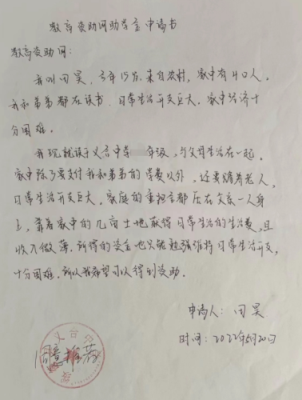 教育资助网助学金申请书
教育资助网:
我叫闫昊，今年15岁，来自农村，家中有4口人，
我和弟弟都在读书，日常生活开支巨大，家中经济十
分困难。
我现就读于义合中学 年级，与父母生活在一起，
家中除了要支付我和弟弟的学费以外，还要赡养老人，
日常生活开支巨大，家庭的重担都压在父亲一人身
上，靠着家中的几亩土地取得日常生活的生活费，且
收入微薄，所得的资金也只能勉强维持日常生活开支，
十分困难，所以我希望可以得到资助。
申请人：闫昊
时间：2022年6月20日
义合中
同意推荐